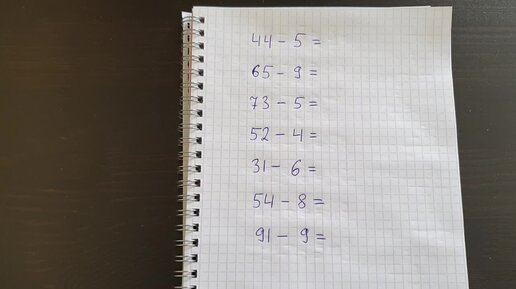 44 - 5 =
65 - 9 =
73 - 5 =
52 - 4 =
31 - 6 =
54 - 8 =
91 - 9 =